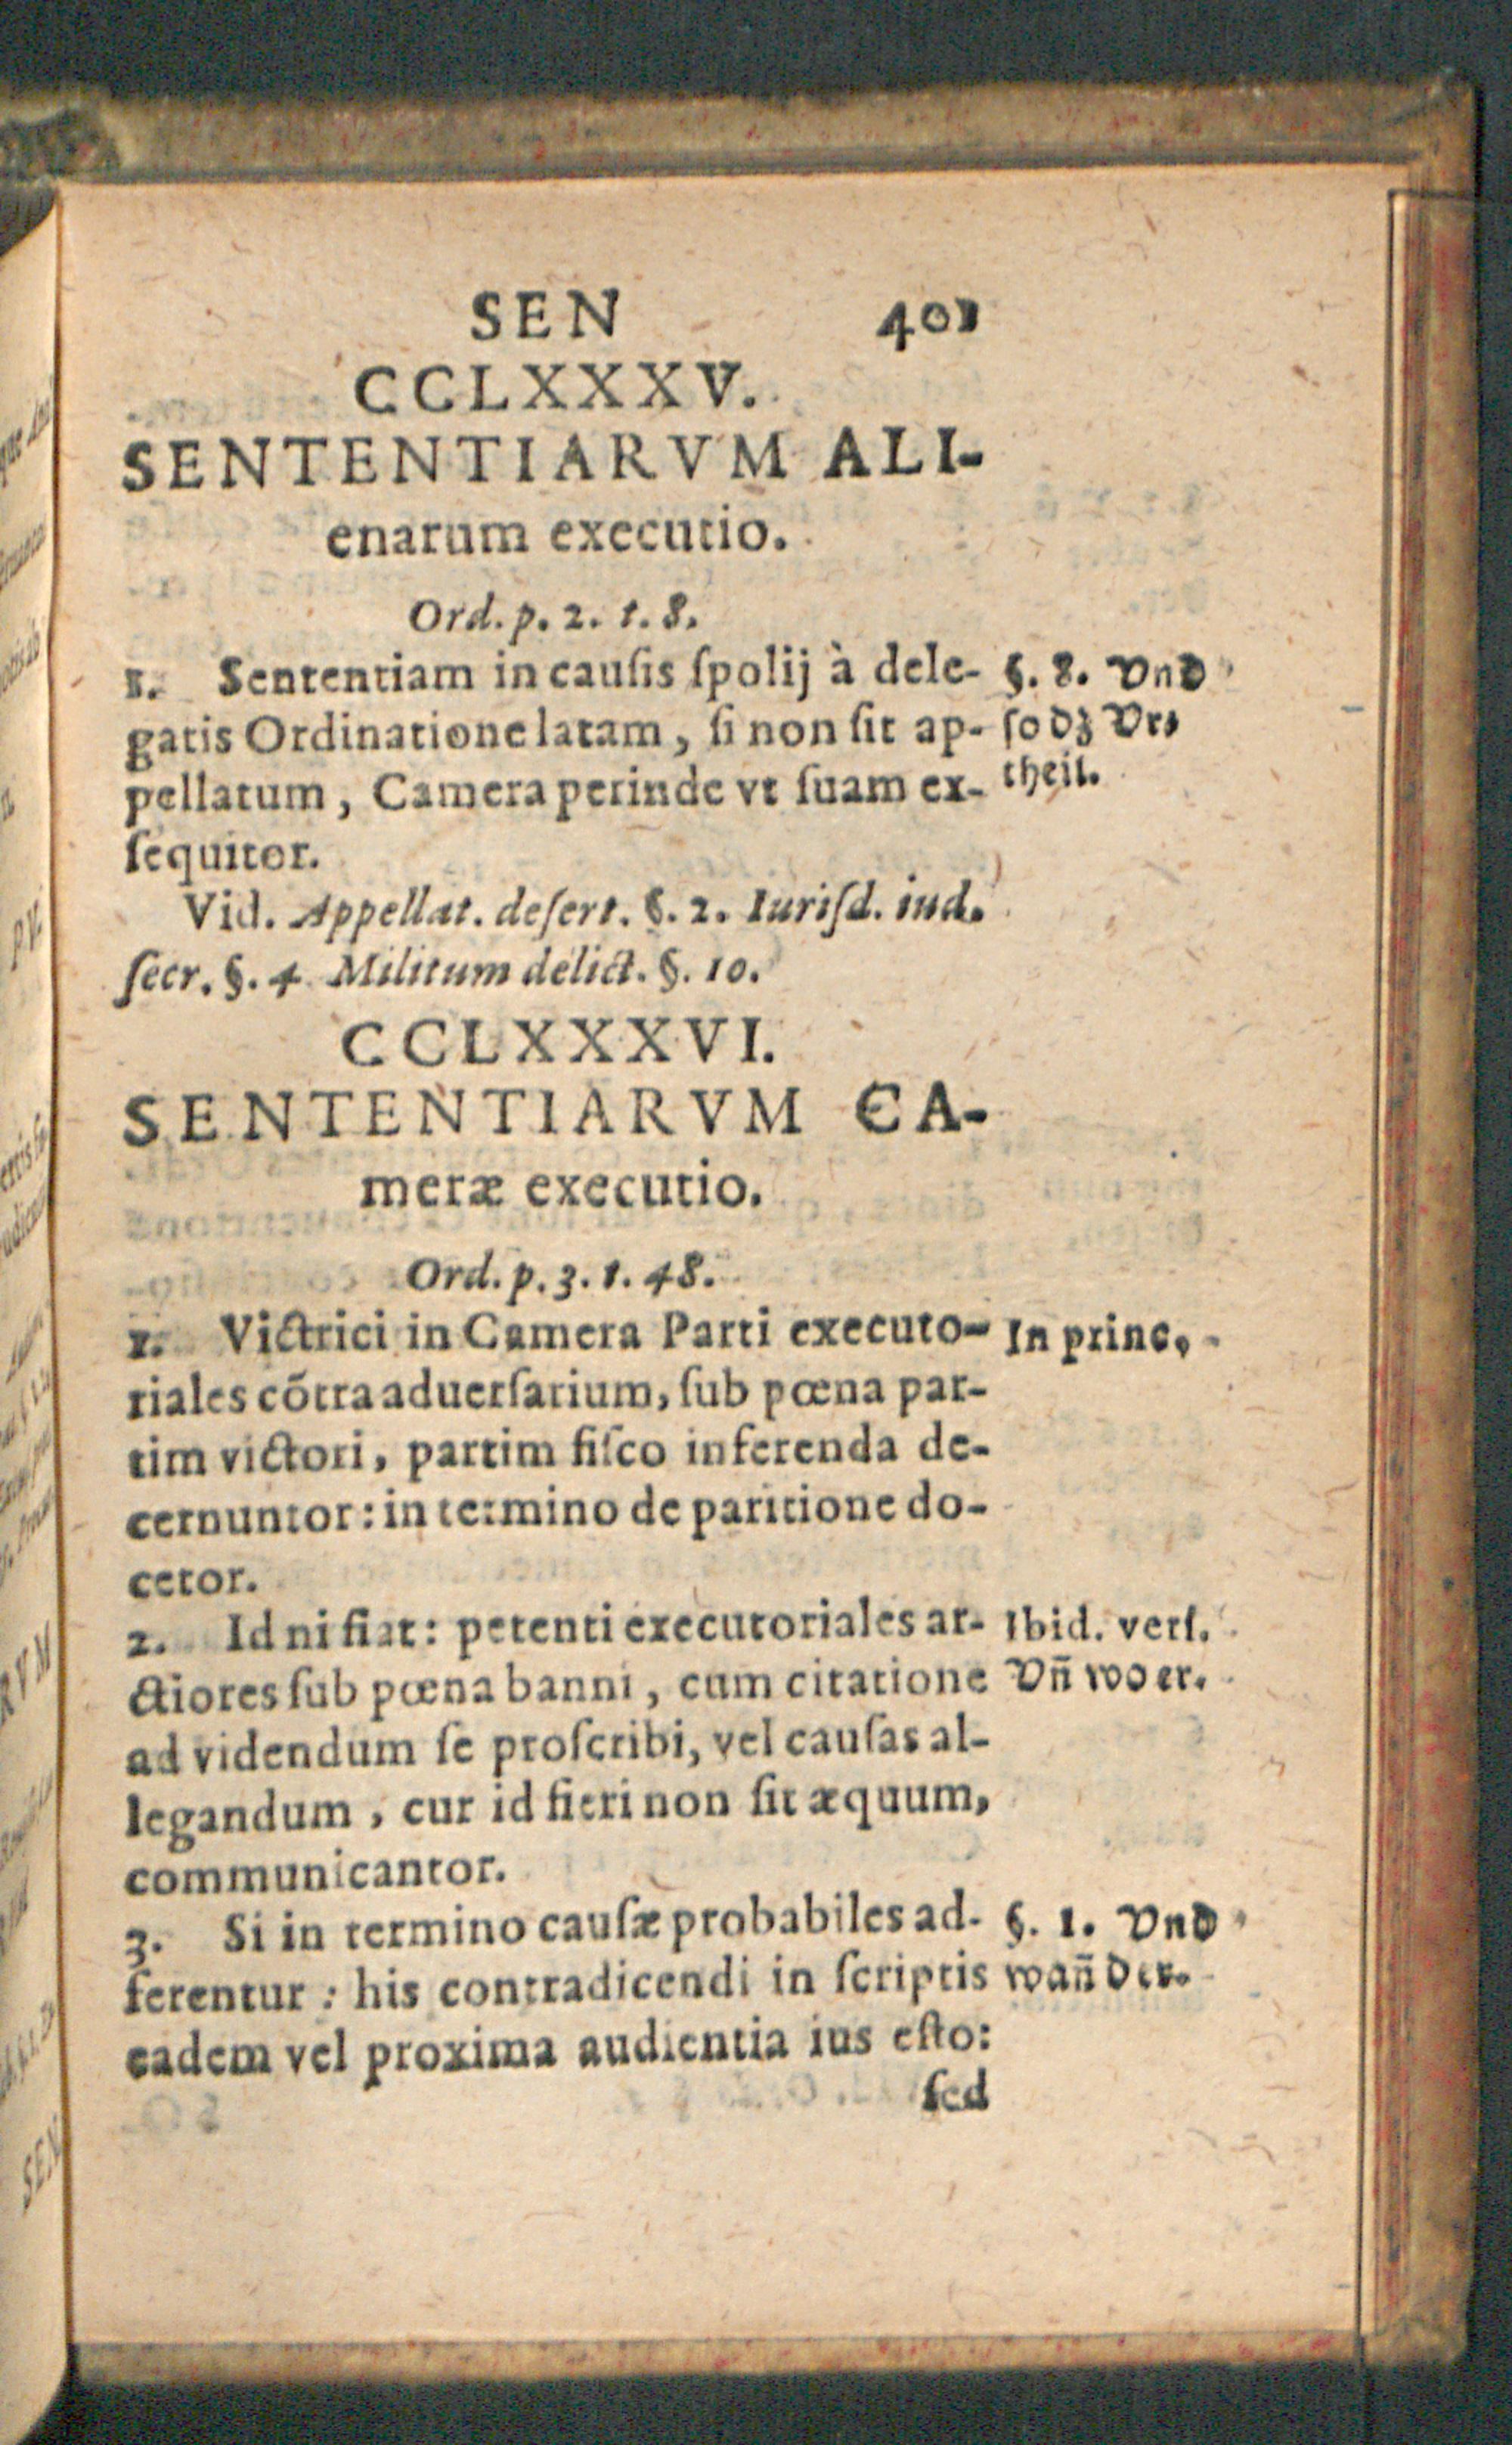 SEN 401
CCLXXXV.
SENTENTIARVM ALI-
enarum executio.
Ord. p. 2. t. 8.
1. Sententiam in cauſis ſpolij à dele-
gatis Ordinatione latam, ſi non ſit ap-
pellatum, Camera perinde vt ſuam ex-
ſequitor.
§. 8. Vnd
ſo dz Vr-
theil.
Vid. Appellat. deſert. §. 2. Iuriſd. iud.
ſecr. §. 4 Militum delict. §. 10.
CCLXXXVI.
SENTENTIARVM CA-
meræ executio.
Ord. p. 3. t. 48.
1. Victrici in Camera Parti executo-
riales cõtra aduerſarium, ſub pœna par-
tim victori, partim fiſco inferenda de-
cernuntor: in termino de paritione do-
cetor.
In princ.
2. Id ni fiat: petenti executoriales ar-
ctiores ſub pœna banni, cum citatione
ad videndum ſe proſcribi, vel cauſas al-
legandum, cur id fieri non ſit æquum,
communicantor.
Ibid. verſ.
Vñ wo er.
3. Si in termino cauſæ probabiles ad-
ferentur: his contradicendi in ſcriptis
eadem vel proxima audientia ius eſto:
§. 1. Vnd
wañ der.
ſed